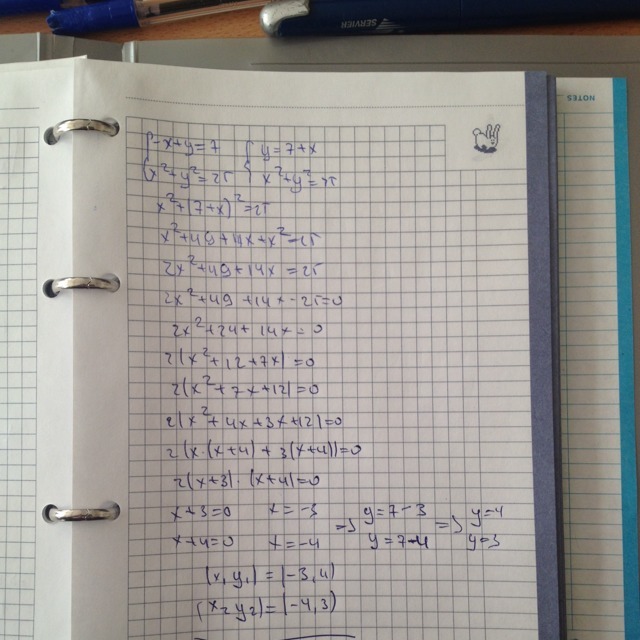 SERVIER
NOTES
{-x+y=7 {y=7+x
{x²+y²=25 {x²+y²=25
x²+(7+x)²=25
x²+49+14x+x²=25
2x²+49+14x=25
2x²+49+14x-25=0
2x²+24+14x=0
2(x²+12+7x)=0
2(x²+7x+12)=0
2(x²+4x+3x+12)=0
2(x·(x+4)+3(x+4))=0
2(x+3)·(x+4)=0
x+3=0 x=-3 => y=7-3 => y=4
x+4=0 x=-4 y=7-4 y=3
(x₁y₁)=(-3,4)
(x₂y₂)=(-4,3)